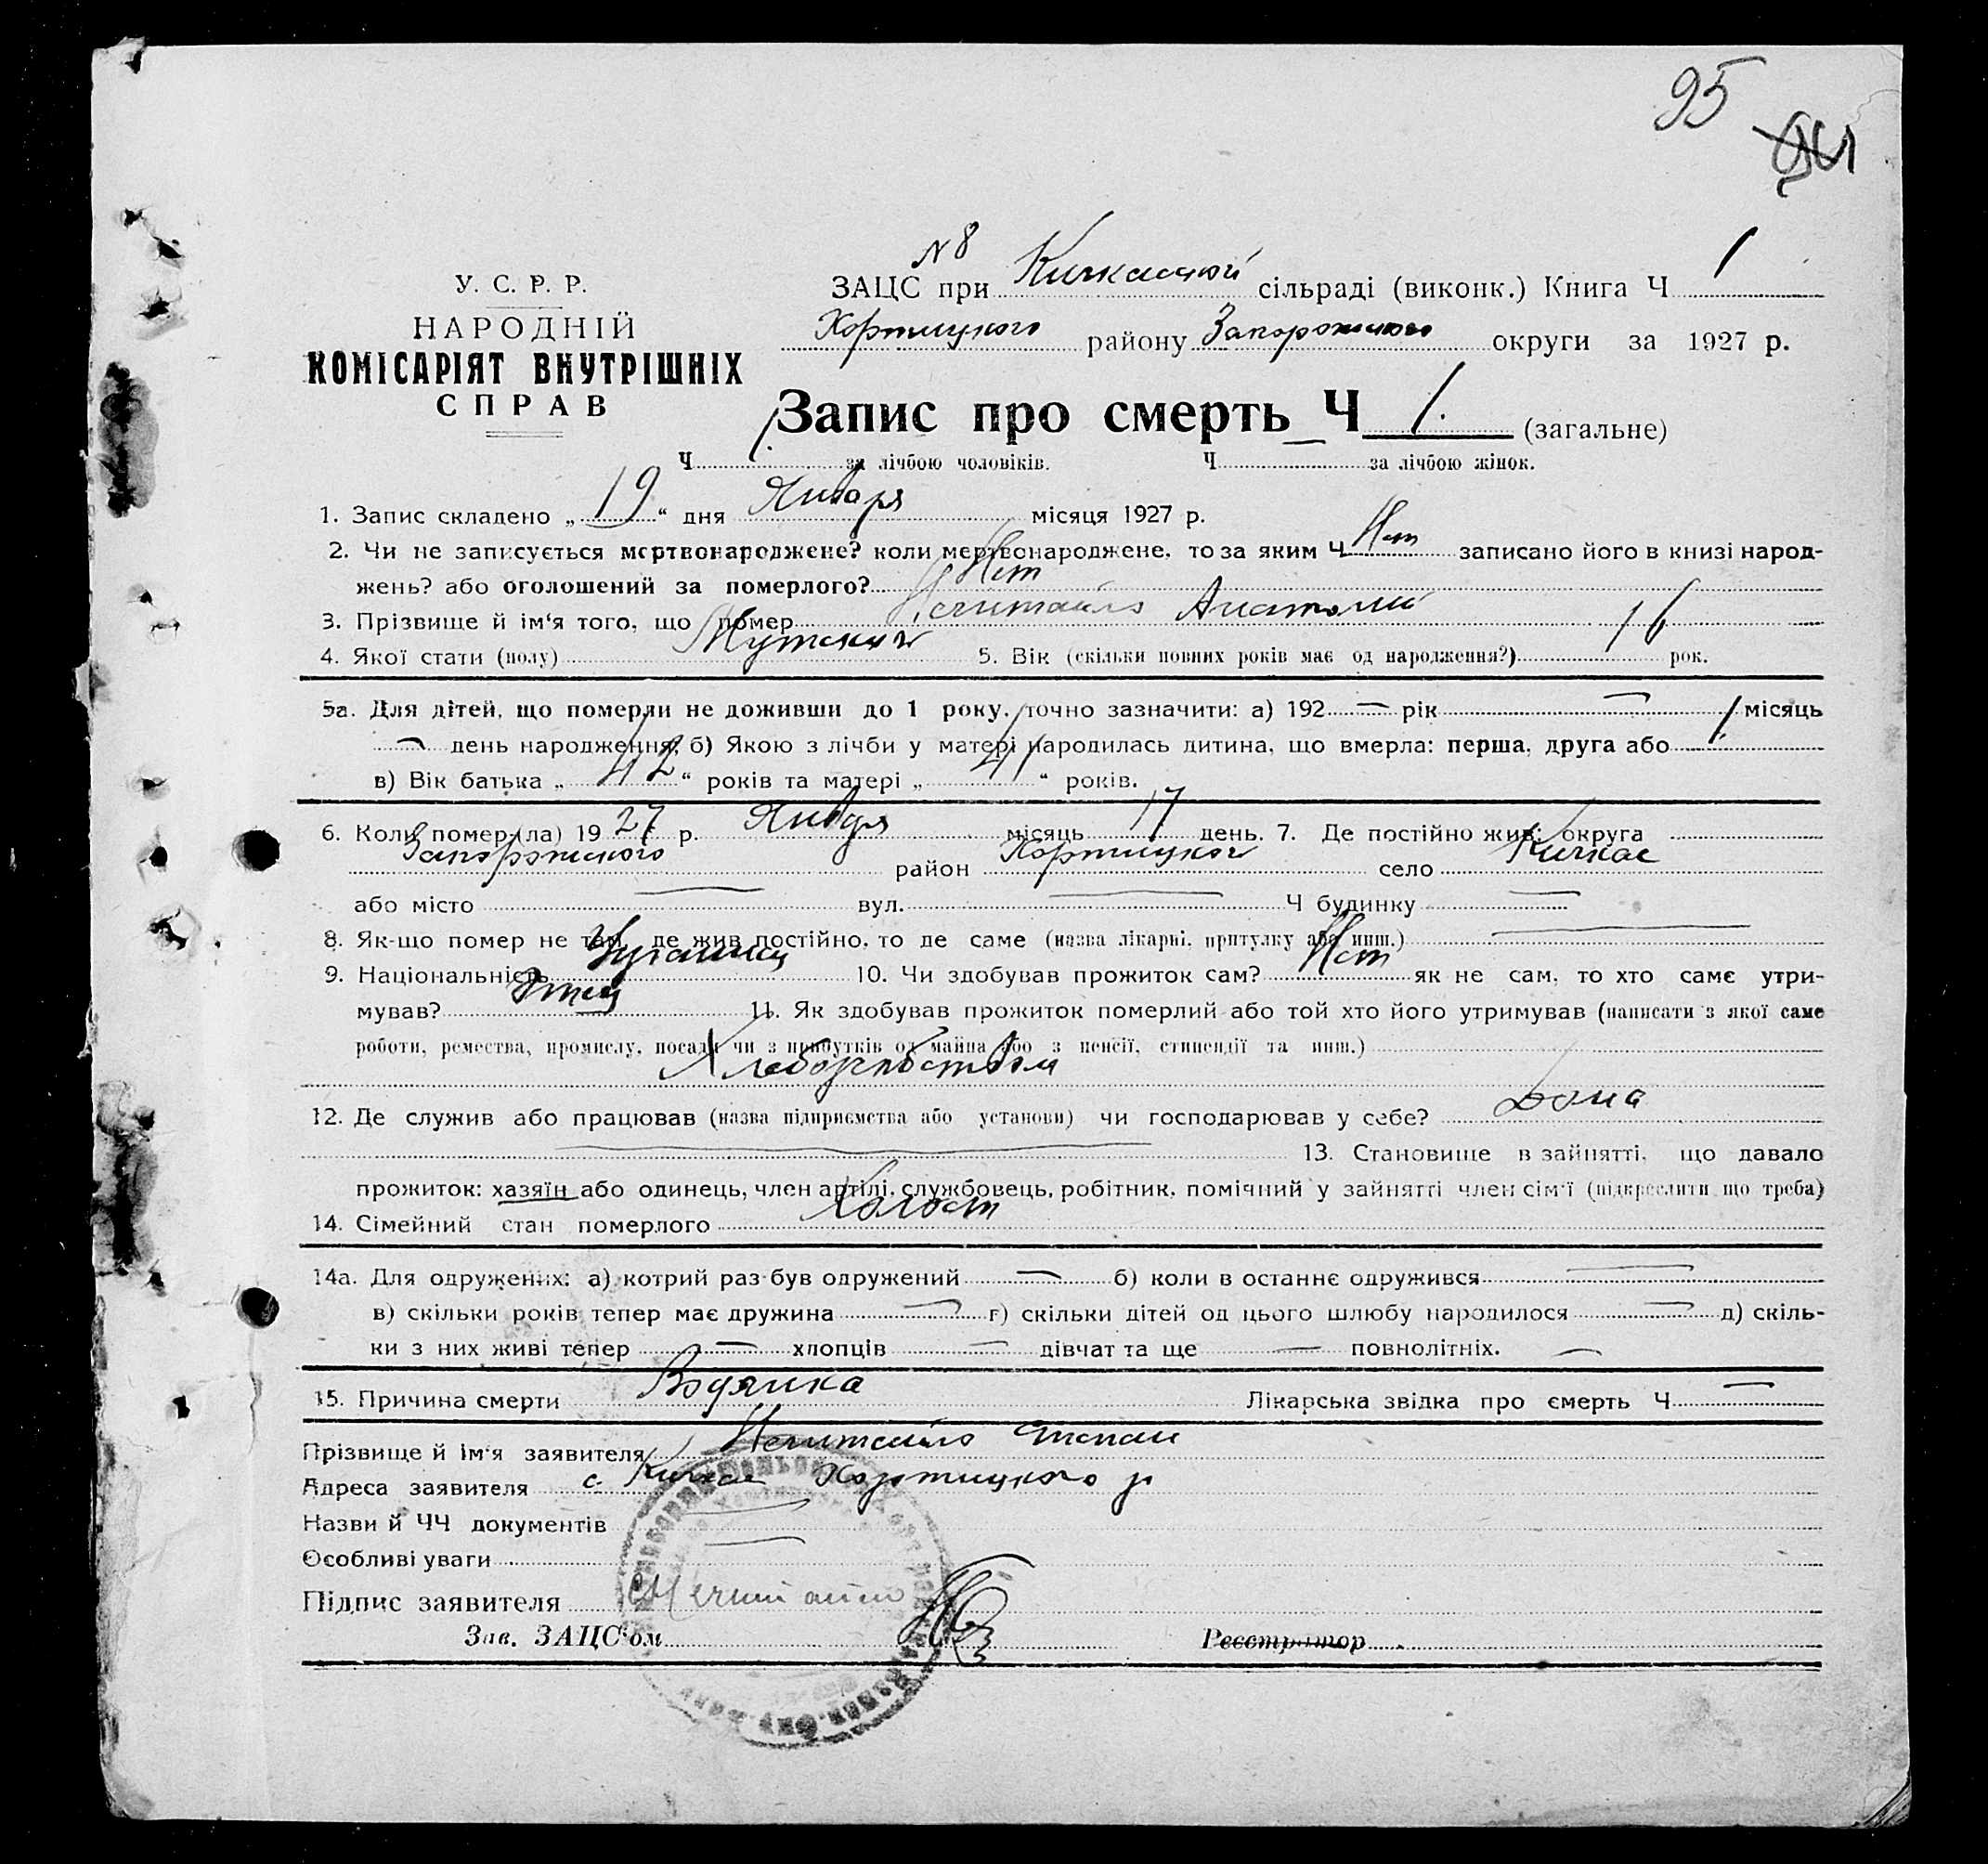 95
N 8
У. С. Р. Р.
НАРОДНІЙ
КОМІСАРІЯТ ВНУТРІШНІХ
СПРАВ
ЗАЦС при Кичкасской сільраді (виконк.) Книга Ч 1
Хортицкого району Запорожского округи за 1927 р.
Запис про смерть Ч 1. (загальне)
Ч 1. за лічбою чоловіків. Ч за лічбою жінок.
1. Запис складено „ 19 “ дня Января місяця 1927 р.
2. Чи не записується мертвонароджене? коли мертвонароджене, то за яким Ч Нет записано його в книзі народ-
жень? або оголошений за померлого? Нет
3. Прізвище й ім'я того, що помер Нечитайло Анатолий
4. Якої стати (полу) Мужской 5. Вік (скільки повних років має од народження?) 16 рок.
5а. Для дітей, що померли не доживши до 1 року, точно зазначити: а) 192 — рік — місяць
— день народження; б) Якою з лічби у матері народилась дитина, що вмерла: перша, друга або 1.
в) Вік батька „ 42 “ років та матері „ 41 “ років.
6. Коли помер (ла) 19 27 р. Января місяць 17 день. 7. Де постійно жив: округа
Запорожского район Хортицкого село Кичкас
або місто — вул. — Ч будинку —
8. Як-що помер не там, де жив постійно, то де саме (назва лікарні, притулку або инш.) —
9. Національність Украинец 10. Чи здобував прожиток сам? Нет як не сам, то хто саме утри-
мував? Отец 11. Як здобував прожиток померлий або той хто його утримував (написати з якої саме
роботи, ремества, промислу, посади чи з прибутків од майна або з пенсії, стипендії та инш.)
Хлеборобством
12. Де служив або працював (назва підприємства або установи) чи господарював у себе? Дома
— 13. Становище в зайнятті, що давало
прожиток: хазяїн або одинець, член артілі, службовець, робітник, помічний у зайнятті член сім'ї (підкреслити що треба)
14. Сімейний стан померлого Холост
14а. Для одружених: а) котрий раз був одружений — б) коли в останнє одружився —
в) скільки років тепер має дружина — г) скільки дітей од цього шлюбу народилося — д) скіль-
ки з них живі тепер — хлопців — дівчат та ще — повнолітніх. —
15. Причина смерти Водянка Лікарська звідка про смерть Ч —
Прізвище й ім'я заявителя Нечитайло Степан
Адреса заявителя с. Кичкас Хортицкого р
Назви й ЧЧ документів —
Особливі уваги —
Підпис заявителя Нечитайло
Зав. ЗАЦС'ом Реєстратор